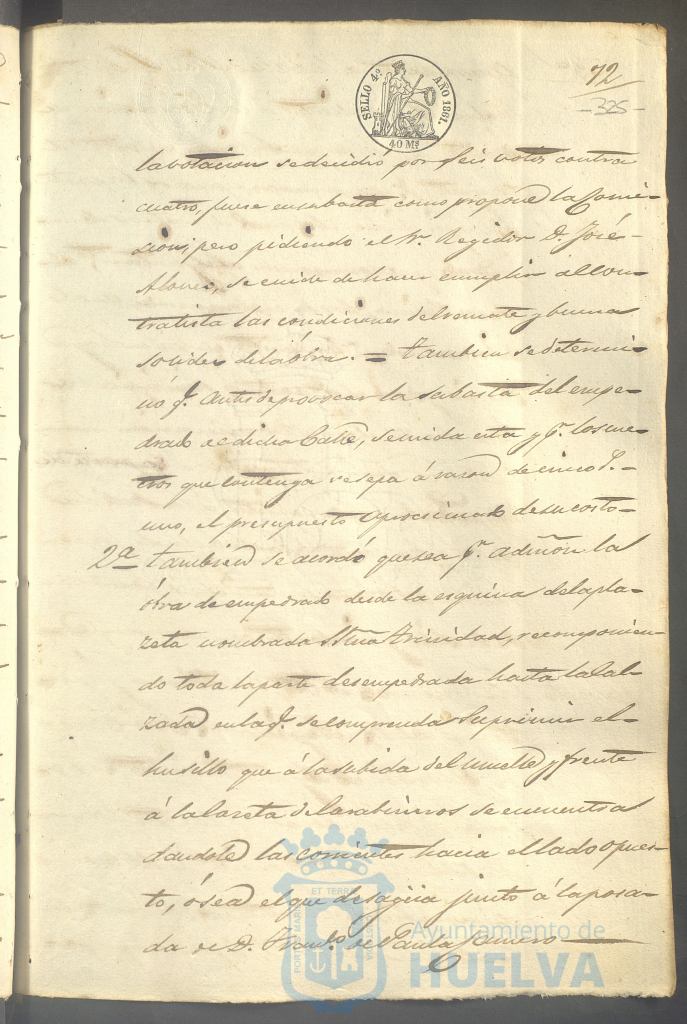 SELLO 4º. AÑO 1861.
40 Ms
72
-325-
la votacion se decidió por seis votos contra
cuatro, fuese en subasta como propone la Comi-
sion; pero pidiendo el Sr. Regidor D. José
Alonso, se cuide de hacer cumplir al con-
tratista las condiciones del remate y buena
solidez de la óbra. = Tambien se determi-
nó q. antes de provocar la subasta del empe-
drado de dicha Calle, se mida esta y pr. los me-
tros que contenga se sepa á razon de cinco rs.
uno, el presupuesto aprocsimado de su costo-
2ª Tambien se acordó que sea pr. admon. la
óbra de empedrado desde la esquina de la pla-
zeta nombrada Stma Trinidad, recomponien-
do toda la parte desempedrada hasta la Cal-
zada en la q. se comprenda suprimir el
husillo que á la subida del muelle y frente
á la Caseta de Carabineros se encuentra
dandole las corrientes hacia el lado opues-
to, ó sea el que desagüa junto á la posa-
da de D. Franco. de Paula Romero
PORTUS MARIS ET TERRAE CUSTODIA
Ayuntamiento de
HUELVA